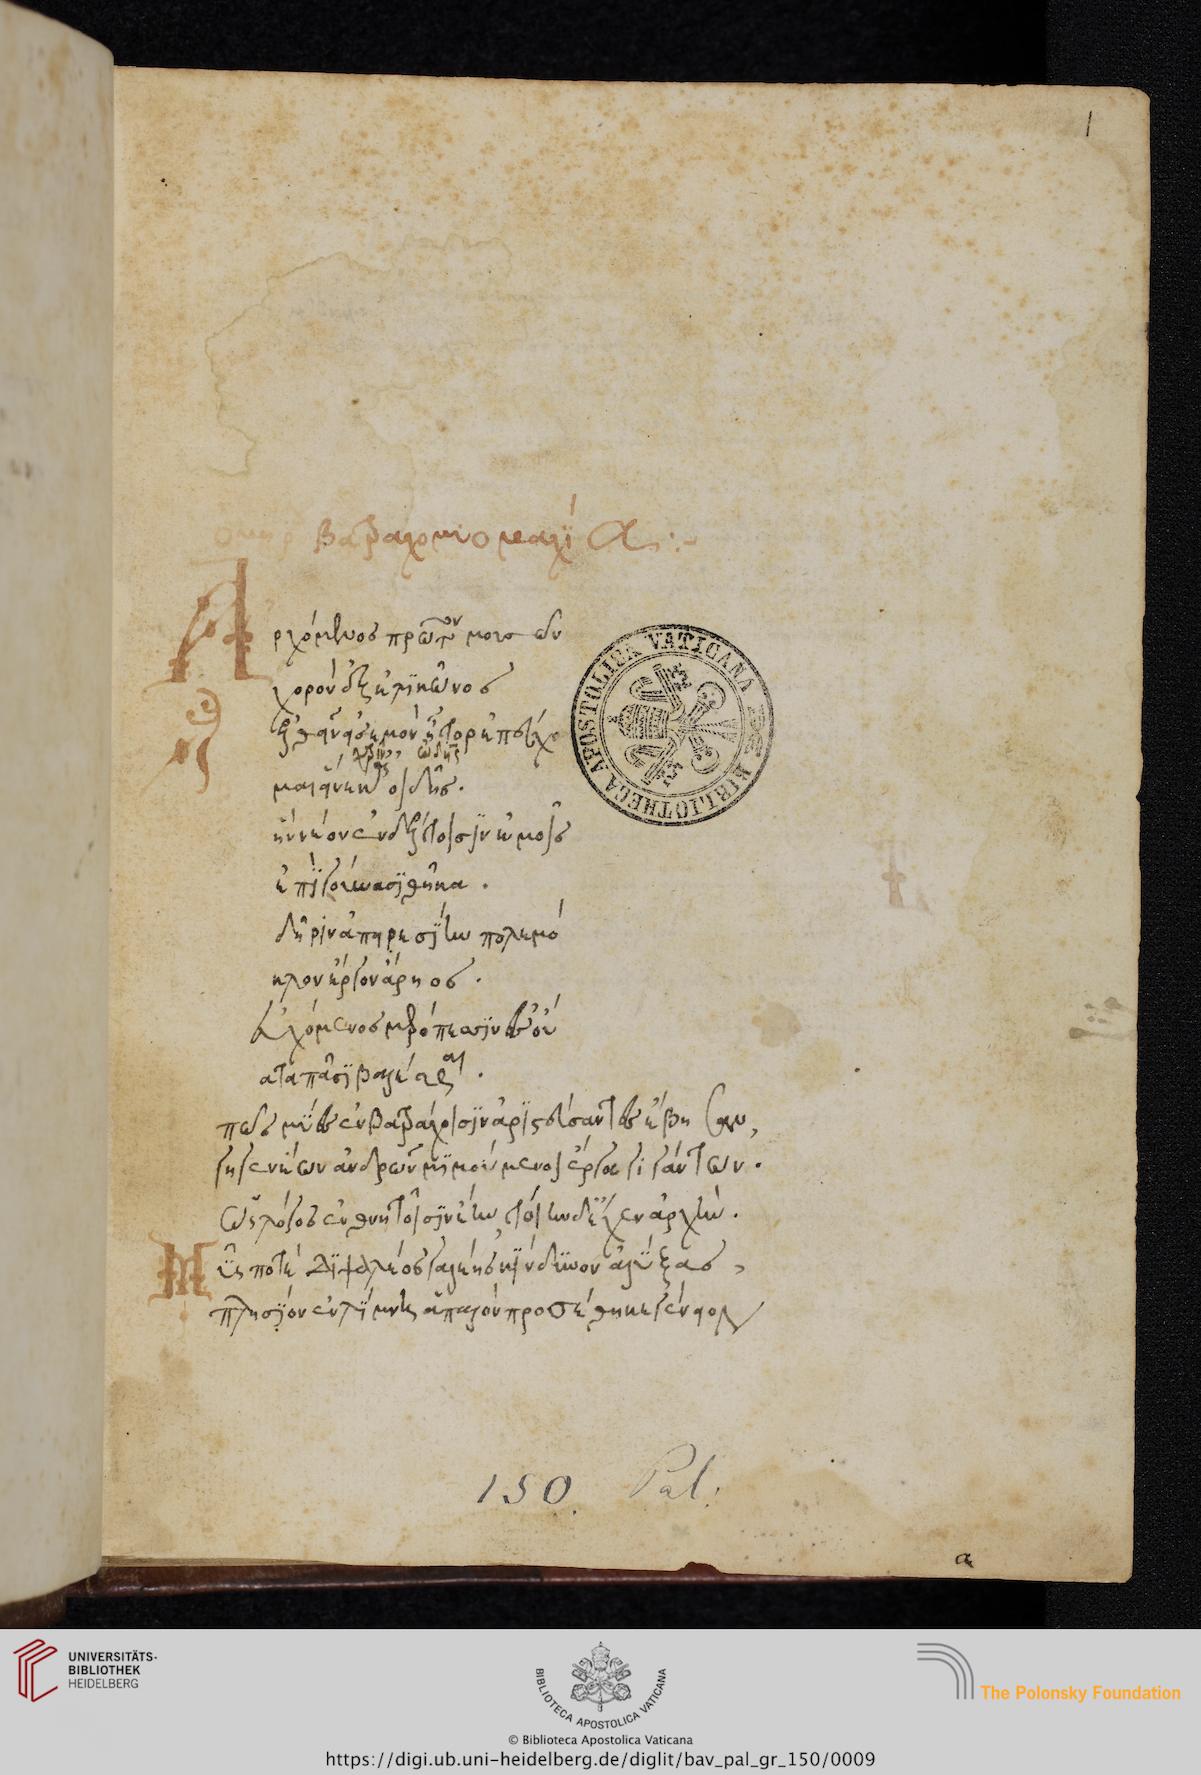 1
βατραχομυομαχί α:-
Ἀ
ρχόμενος πρῶτον μουσῶν
χορὸν ἐξ ἑλικῶνος
ἐλθεῖν εἰς ἐμὸν ἦτορ ἐπεύχο
μαι εἵνεκ' ἀοιδῆς.
ἣν νέον ἐν δέλτοισιν ἐμοῖς
ἐπὶ γούνασι θῆκα.
δῆριν ἀπειρεσίην πολεμό
κλονον ἔργον ἄρηος.
εὐχόμενος μερόπεσσιν ἐς οὔ
ατα πᾶσι βαλέσθαι.
πῶς μύες ἐν βατράχοισιν ἀριστεύσαντες ἔβησαν,
γηγενέων ἀνδρῶν μιμούμενοι ἔργα γιγάντων.
ὡς λόγος ἐν θνητοῖσιν ἔην τοίην δ' ἔχεν ἀρχήν.
Μ
ῦς ποτὲ διψαλέος γαλέης κίνδυνον ἀλύξας,
πλησίον ἐν λίμνῃ ἁπαλὸν προσέθηκε γένειον
150. Pal.
a
BIBLIOTHECA APOSTOLICA VATICANA
UNIVERSITÄTS-
BIBLIOTHEK
HEIDELBERG
BIBLIOTECA APOSTOLICA VATICANA
The Polonsky Foundation
© Biblioteca Apostolica Vaticana
https://digi.ub.uni-heidelberg.de/diglit/bav_pal_gr_150/0009